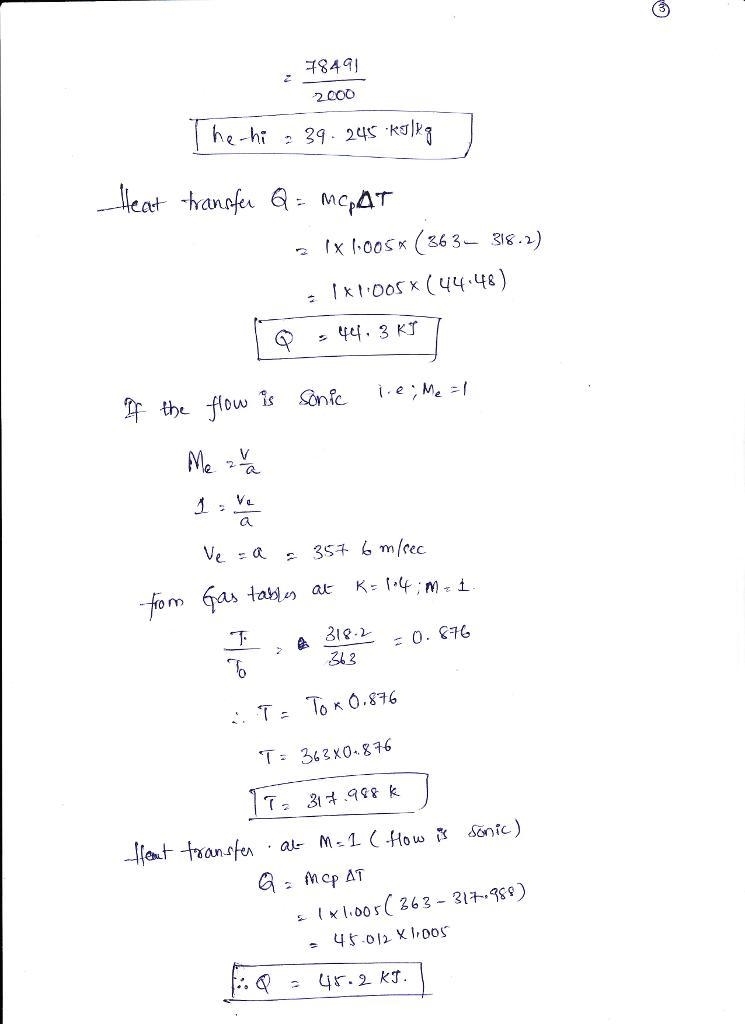 3
= 78491
2000
he-hi = 39.245 KJ/kg
Heat transfer Q = MCpΔT
= 1x1.005x(363-318.2)
= 1x1.005x(44.48)
Q = 44.3 KJ
If the flow is Sonic i.e; Me=1
Me = V/a
1 = Ve/a
Ve = a = 357 6 m/sec
from Gas tables at K=1.4; M=1.
T/To = 318.2/363 = 0.876
∴ T = To x 0.876
T = 363x0.876
T = 317.988 k
Heat transfer at M=1 (flow is sonic)
Q = Mcp ΔT
= 1x1.005(363-317.988)
= 45.012 x1.005
∴ Q = 45.2 KJ.